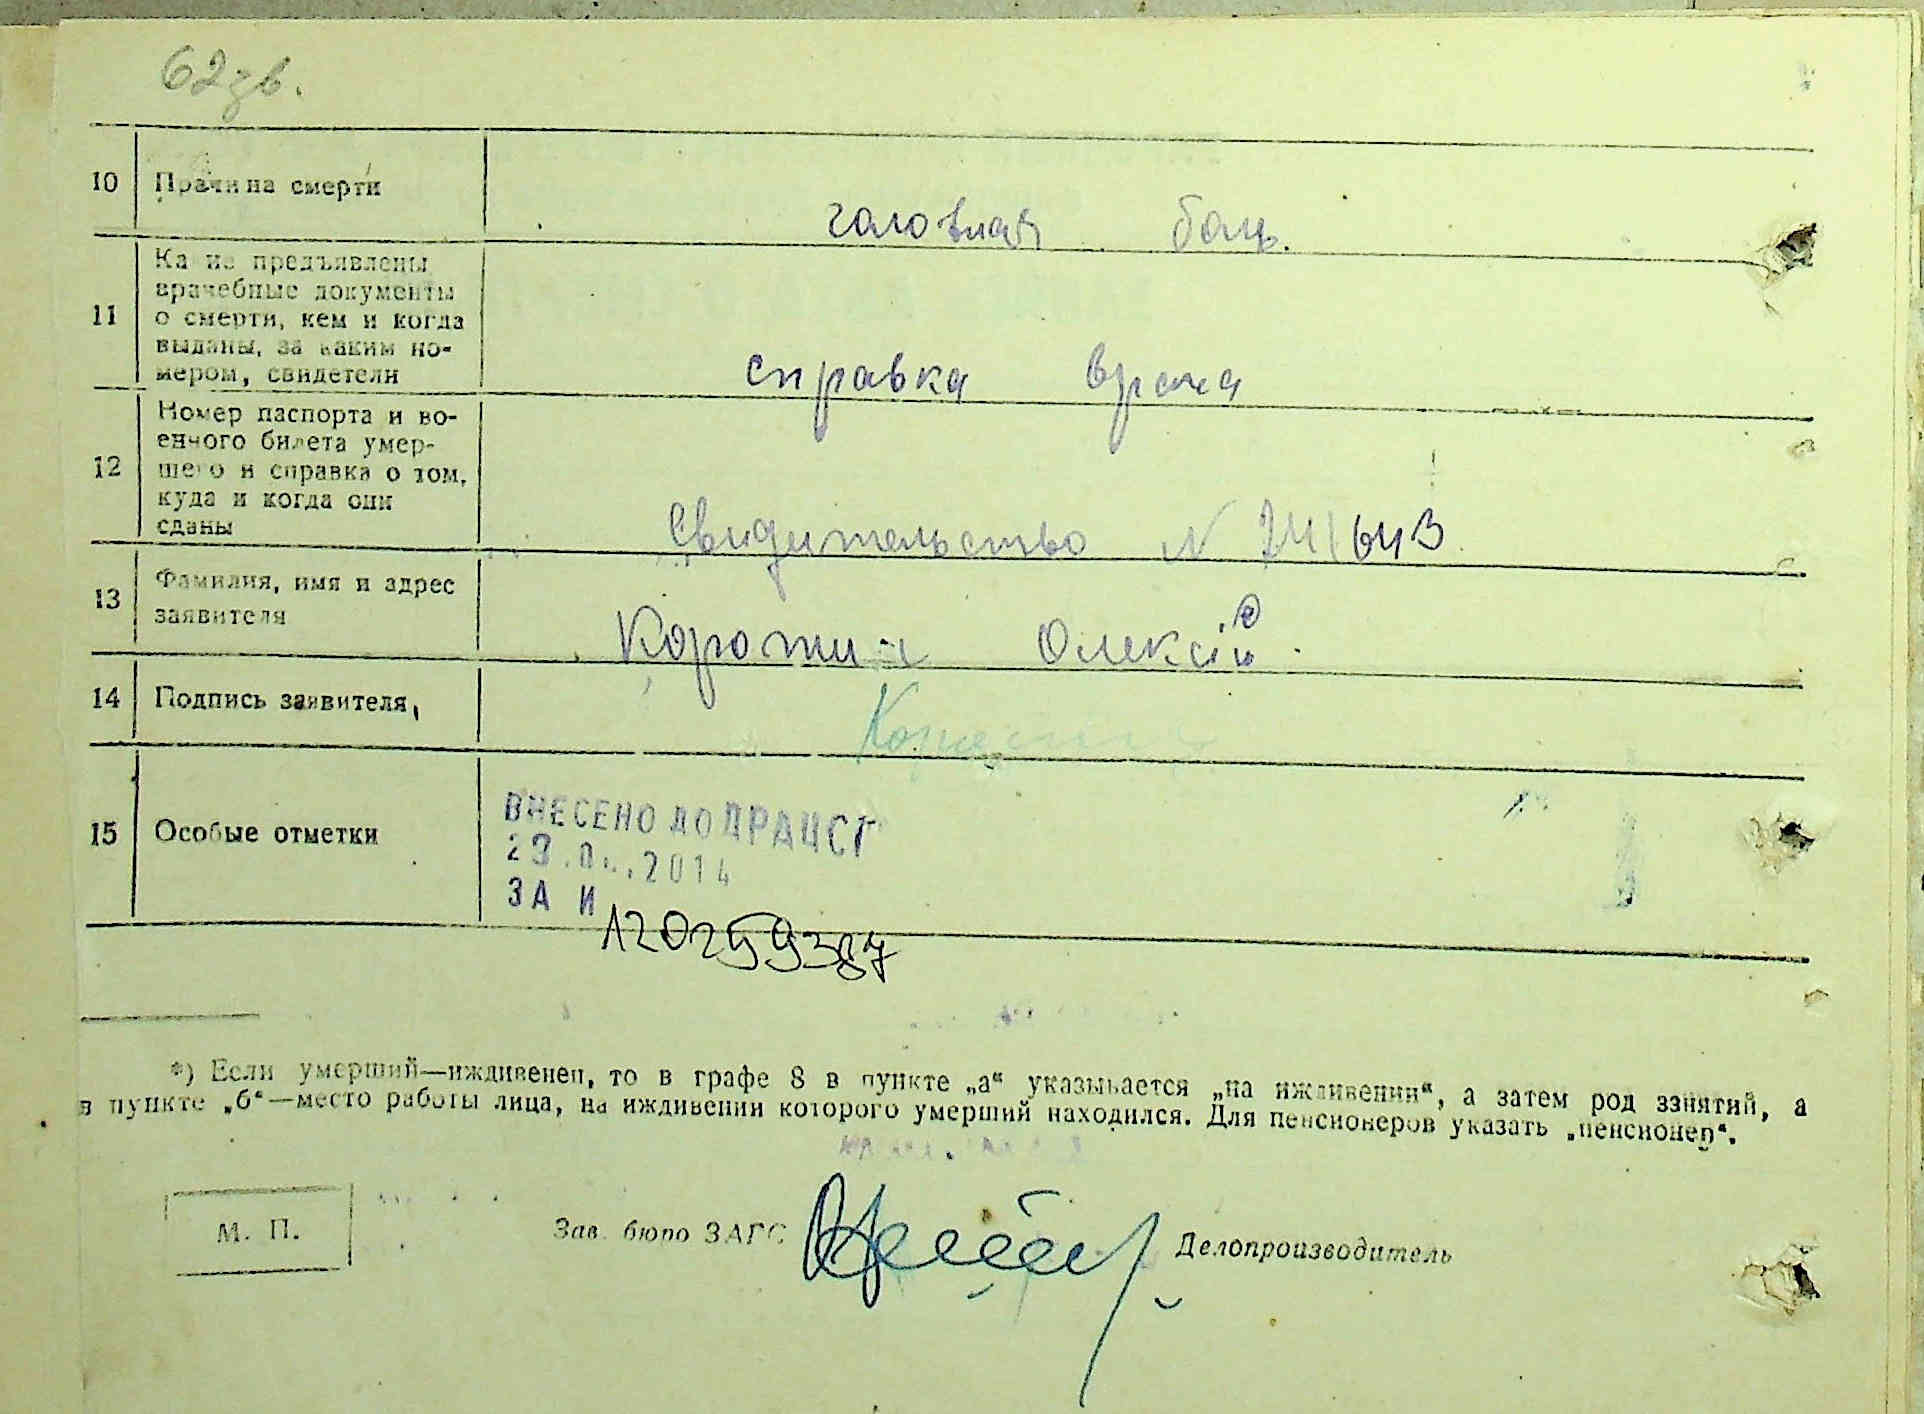 62 зв.
10 Причина смерти
головная боль.
11 Какие предъявлены
врачебные документы
о смерти, кем и когда
выданы, за каким но-
мером, свидетели
справка врача
12 Номер паспорта и во-
енного билета умер-
шего и справка о том,
куда и когда они
сданы
Свидительство N
13 Фамилия, имя и адрес
заявителя
Олексій
14 Подпись заявителя,
15 Особые отметки
ВНЕСЕНО ДО ДРАЦСГ
2014
ЗА И
120259387
*) Если умерший—иждивенец, то в графе 8 в пункте „а“ указывается „на иждивении“, а затем род занятий, а
в пункте „б“—место работы лица, на иждивении которого умерший находился. Для пенсионеров указать „пенсионер“.
М. П.
Зав. бюро ЗАГС Делопроизводитель